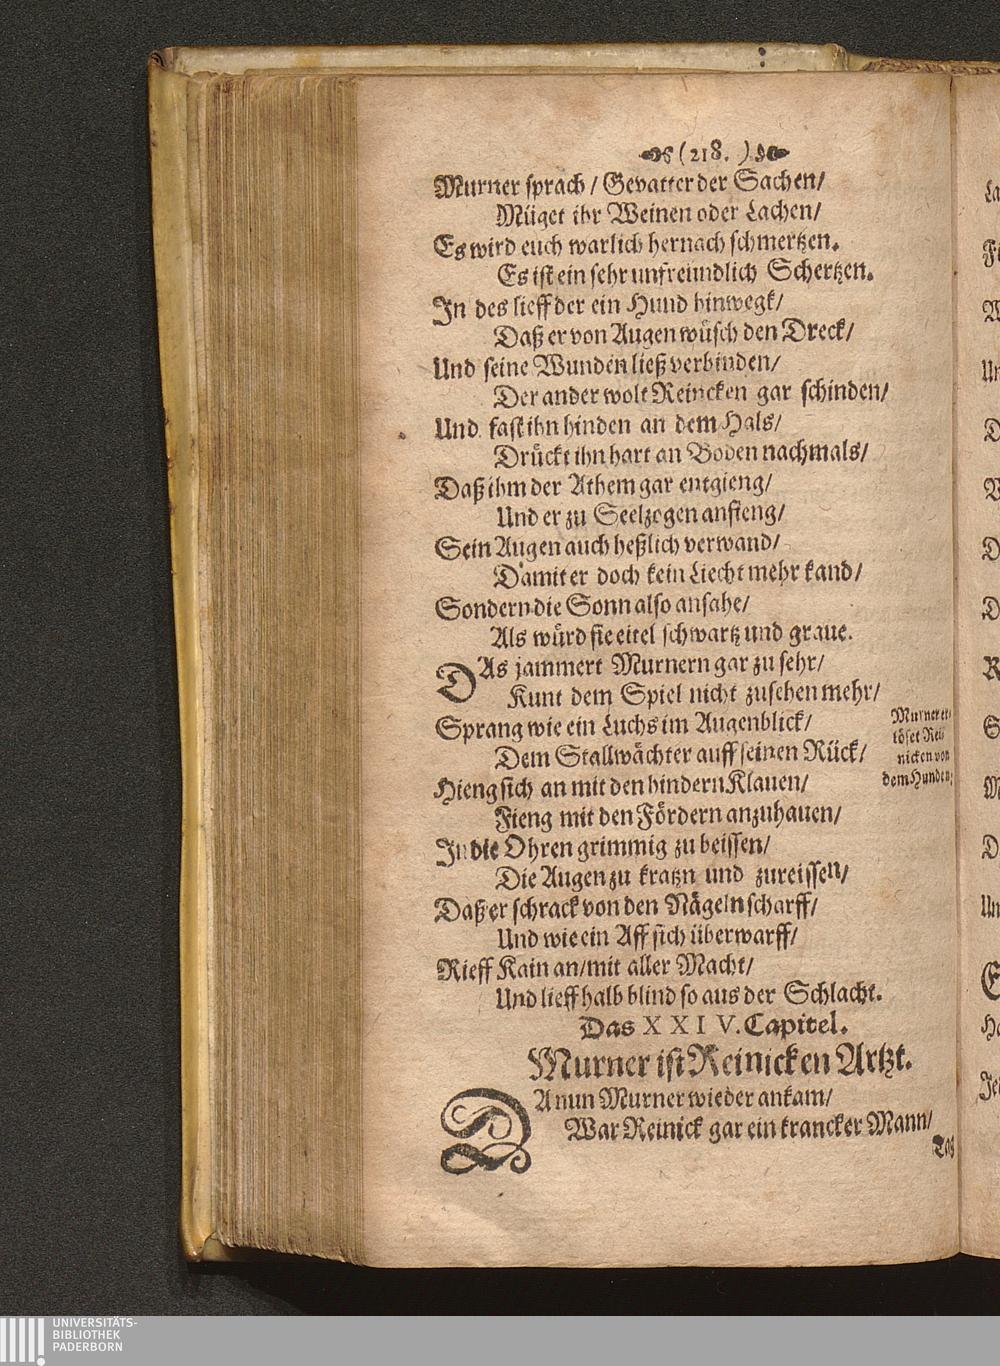 (218.)
Murner sprach / Gevatter der Sachen/
Müget ihr Weinen oder Lachen/
Es wird euch warlich hernach schmertzen.
Es ist ein sehr unfreundlich Schertzen.
In des lieff der ein Hund hinwegk/
Daß er von Augen wüsch den Dreck/
Und seine Wunden ließ verbinden/
Der ander wolt Reincken gar schinden/
Und fast ihn hinden an dem Hals/
Drückt ihn hart an Boden nachmals/
Daß ihm der Athem gar entgieng/
Und er zu Seelzogen anfieng/
Sein Augen auch heßlich verwand/
Damit er doch kein Liecht mehr kand/
Sondern die Sonn also ansahe/
Als würd sie eitel schwartz und graue.
DAs jammert Murnern gar zu sehr/
Kunt dem Spiel nicht zusehen mehr/
Sprang wie ein Luchs im Augenblick/
Dem Stallwächter auff seinen Rück/
Hieng sich an mit den hindern Klauen/
Fieng mit den Fördern anzuhauen/
In die Ohren grimmig zu beissen/
Die Augen zu kratzn und zureissen/
Daß er schrack von den Nägeln scharff/
Und wie ein Aff sich überwarff/
Rieff Kain an/mit aller Macht/
Und lieff halb blind so aus der Schlacht.
Murner er-
löset Rei-
nicken von
dem Hunden;
Das XXIV. Capitel.
Murner ist Reinicken Artzt.
DA nun Murner wieder ankam/
War Reinick gar ein krancker Mann/
UNIVERSITÄTS-
BIBLIOTHEK
PADERBORN